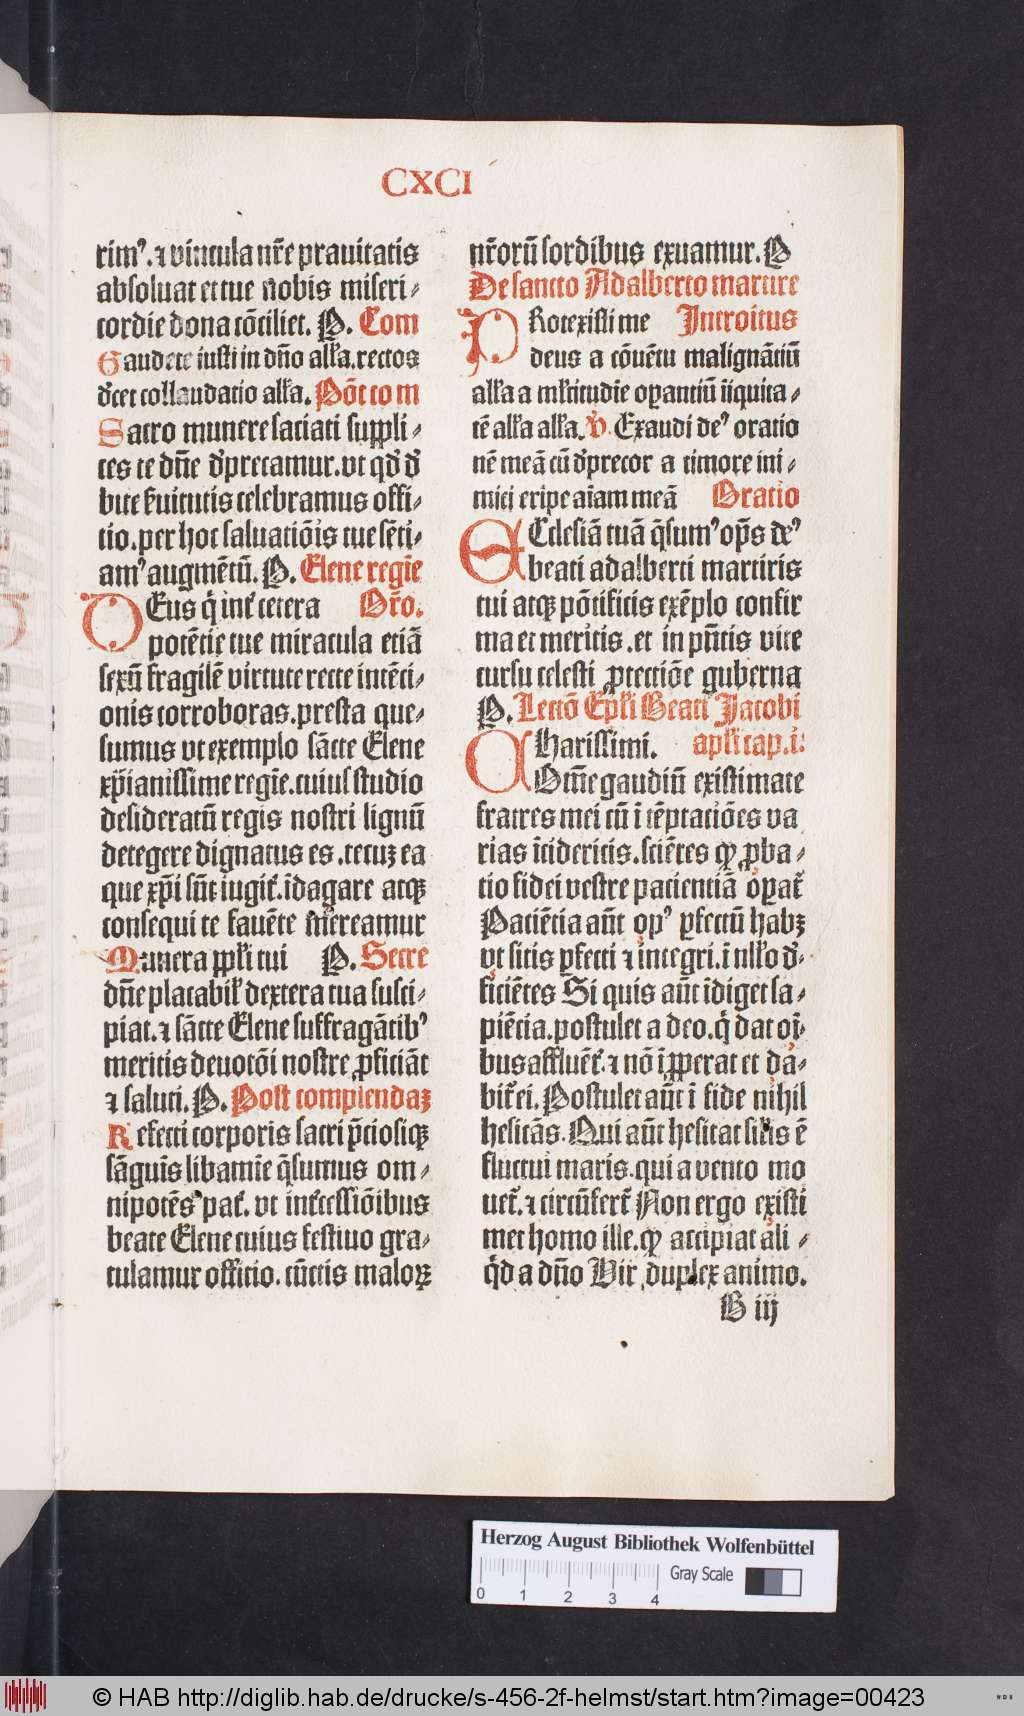 CXCI
rimꝰ. ⁊ vincula nr̄e prauitatis
absoluat et tue nobis miseri⸗
cordie dona cōciliet. P. Com
Gaudete iusti in dn̄o alľa. rectos
ďcet collaudatio alľa. Pōt com
Sacro munere saciati suppli⸗
ces te dn̄e ďprecamur. vt qď ď
bite ẜuitutis celebramus offi⸗
tio. per hoc saluatiōis tue sēti⸗
amꝰ augmētū. P. Elene regīe
DEus q̇ int̄ cetera Or̄o.
potētie tue miracula etiā
sexū fragilē virtute recte intēci⸗
onis corroboras. presta que⸗
sumus vt exemplo sācte Elene
xp̄ianissime regīe. cuius studio
desideratū regis nostri lignū
detegere dignatus es. tecuꝫ ea
que xp̄i sūt iugit̄. īdagare atqꝫ
consequi te fauēte mereamur
Munera ppľi tui P. Secre
dn̄e placabiľ dextera tua susci⸗
piat. ⁊ sācte Elene suffragātibꝰ
meritis deuotōi nostre ꝓficiāt
⁊ saluti. P. Post complendaꝫ
Refecti corporis sacri p̄ciosiqꝫ
sāguīs libamīe q̄sumus om⸗
nipotēs pat̄. vt int̄cessiōibus
beate Elene cuius festiuo gra⸗
tulamur officio. cūctis maloꝝ
nr̄orū sordibus exuamur. P
De sancto Adalberto martire
PRotexisti me Introitus
deus a cōuētu malignātiū
alľa a mľtitudīe oꝑantiū iīquita⸗
tē alľa alľa. V̇. Exaudi deꝰ oratio
nē meā cū ďprecor a timore ini⸗
mici eripe aīam meā Oratio
ECclesiā tuā q̄sumꝰ op̄s deꝰ
beati adalberti martiris
tui atqꝫ pōtificis exēplo confir
ma et meritis. et in pn̄tis vite
cursu celesti ꝓtectiōe guberna
P. Lectō Epľi Beati Jacobi
CHarissimi. apľi cap. i:
Om̄e gaudiū existimate
fratres mei cū ī tēptatiōes va
rias īcideritis. sciētes qꝙ ꝓba⸗
tio fidei vestre pacientiā oꝑat̄
Paciētia aūt opꝰ ꝑfectū habꝫ
vt sitis ꝑfecti ⁊ integri. ī nľľo ď⸗
ficiētes Si quis aūt īdiget sa⸗
piētia. postulet a deo. q̇ dat oī⸗
bus affluēt̄. ⁊ nō īꝓperat et da⸗
bit̄ ei. Postulet aūt ī fide nihil
hesitās. Qui aūt hesitat siľis ē
fluctui maris. qui a vento mo
uet̄. ⁊ circūfert̄ Non ergo existi
met homo ille. qꝙ accipiat ali⸗
q̇d a dn̄o Vir duplex animo.
B iij
Herzog August Bibliothek Wolfenbüttel
Gray Scale
0 1 2 3 4
© HAB http://diglib.hab.de/drucke/s-456-2f-helmst/start.htm?image=00423